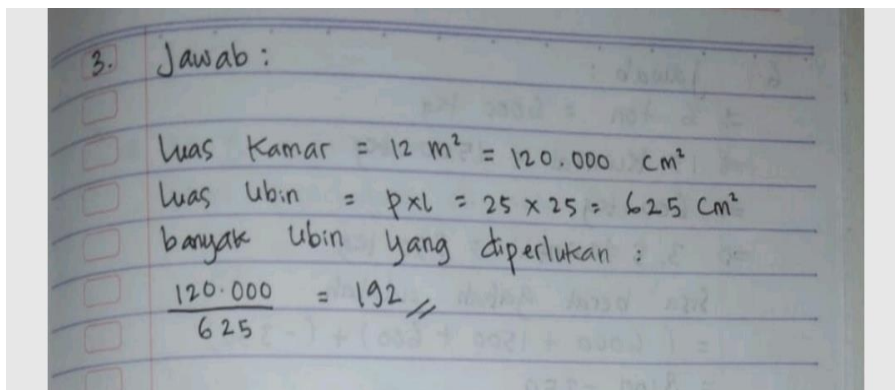 3. Jawab :
Luas Kamar = 12 m² = 120.000 cm²
Luas Ubin = pxl = 25 x 25 = 625 Cm²
banyak Ubin yang diperlukan :
120.000
625
= 192 //